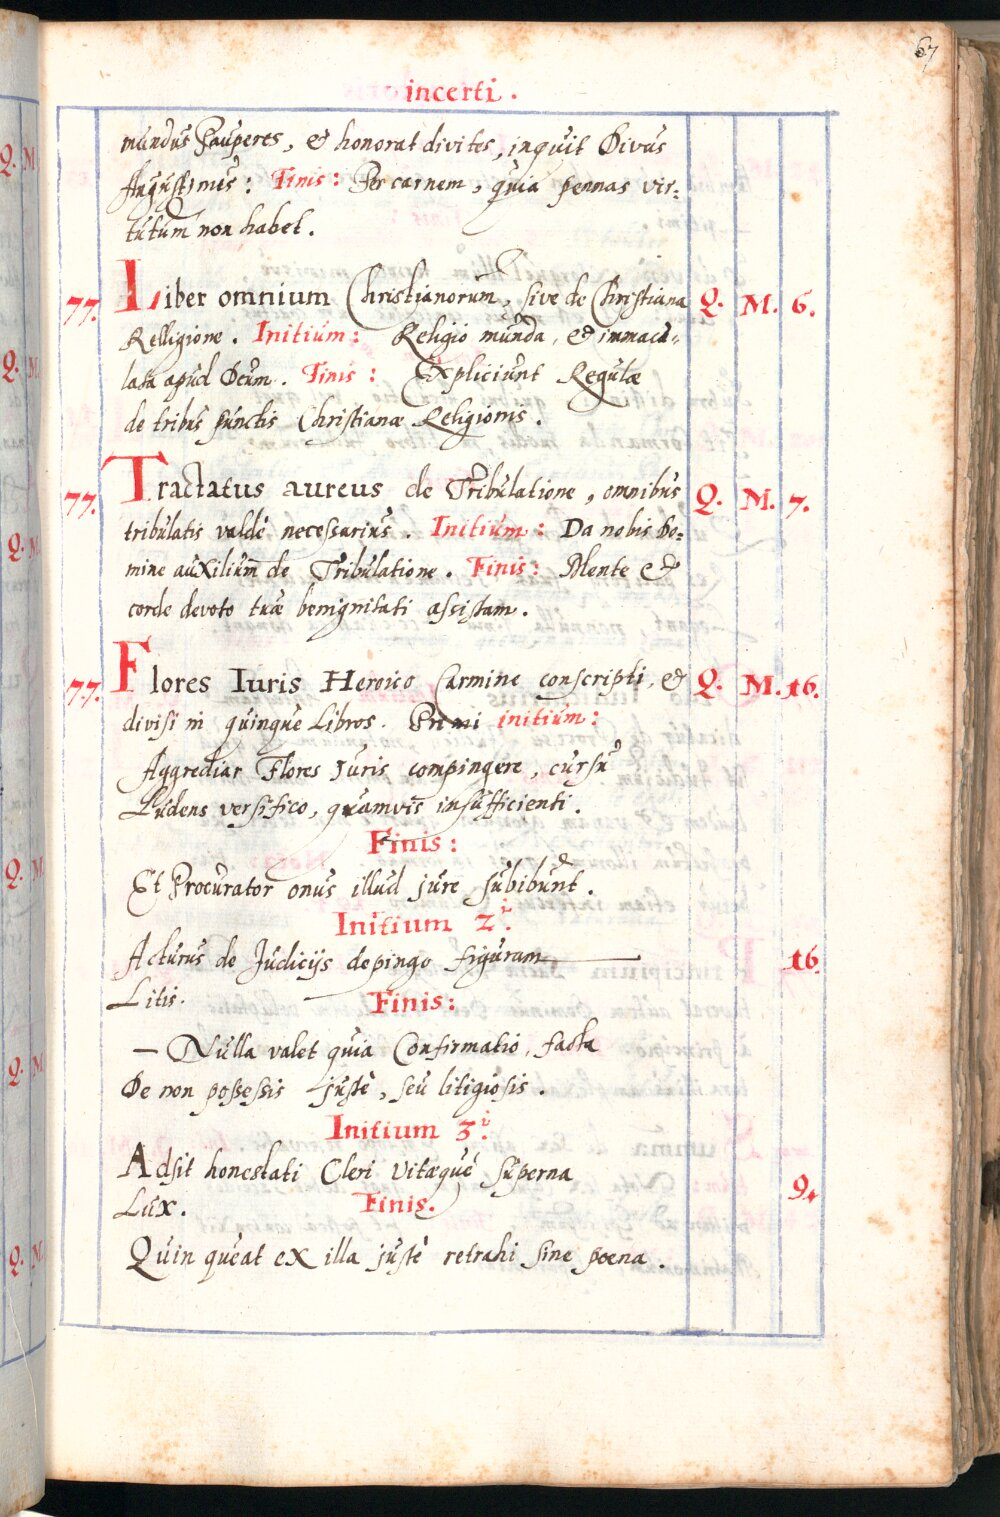 67
incerti.
mundus Pauperes, & honorat divites, inquit Divus
Augustinus: Finis: Per carnem, quia pennas vir-
tutum non habet.
77. Liber omnium Christianorum, sive de Christiana Q. M. 6.
Relligione. Initium: Religio munda, & immacu-
lata apud Deum. Finis: Expliciunt Regulæ
de tribus punctis Christianæ Religionis.
77. Tractatus aureus de Tribulatione, omnibus Q. M. 7.
tribulatis valdè necessarius. Initium: Da nobis Do-
mine auxilium de Tribulatione. Finis: Mente &
corde devoto tuæ benignitati assistam.
77. Flores Iuris Heroico Carmine conscripti, & Q. M. 16.
divisi in quinque Libros. Primi initium:
Aggrediar Flores Juris compingere, cursu
Ludens versifico, quamvis insufficienti.
Finis:
Et Procurator onus illud jure subibunt.
Initium 2i.
Acturus de Judicijs depingo figuram 16.
Litis. Finis:
— Nulla valet quia Confirmatio, facta
De non possessis justè, seu litigiosis.
Initium 3i.
Adsit honestati Cleri vitæque superna 9.
Lux. Finis.
Quin queat ex illa justè retrahi sine poena.
Q. M
Q. M
Q. M
Q. M
Q. M
Q. M